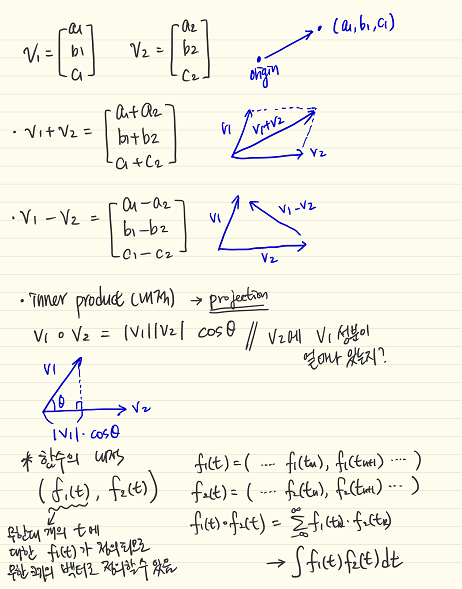 V₁ = [a₁ b₁ c₁] V₂ = [a₂ b₂ c₂] origin (a₁, b₁, c₁)
· V₁ + V₂ = [a₁+a₂ b₁+b₂ c₁+c₂] V₁ V₁+V₂ V₂
· V₁ - V₂ = [a₁-a₂ b₁-b₂ c₁-c₂] V₁ V₁-V₂ V₂
· Inner product (내적) → projection
V₁ ∘ V₂ = |V₁||V₂| cosθ // V₂에 V₁ 성분이
얼마나 있는지?
V₁ θ V₂
|V₁|·cosθ
* 함수의 내적
(f₁(t), f₂(t))
무한대 개의 t에
대한 f₁(t)가 정의되므로
무한 크기의 벡터로 정의할 수 있음
f₁(t) = ( ···· f₁(tₙ), f₁(tₙ₊₁) ···· )
f₂(t) = ( ···· f₂(tₙ), f₂(tₙ₊₁) ··· )
f₁(t)∘f₂(t) = ∑ f₁(tₙ)·f₂(tₙ)
→ ∫f₁(t)f₂(t)dt